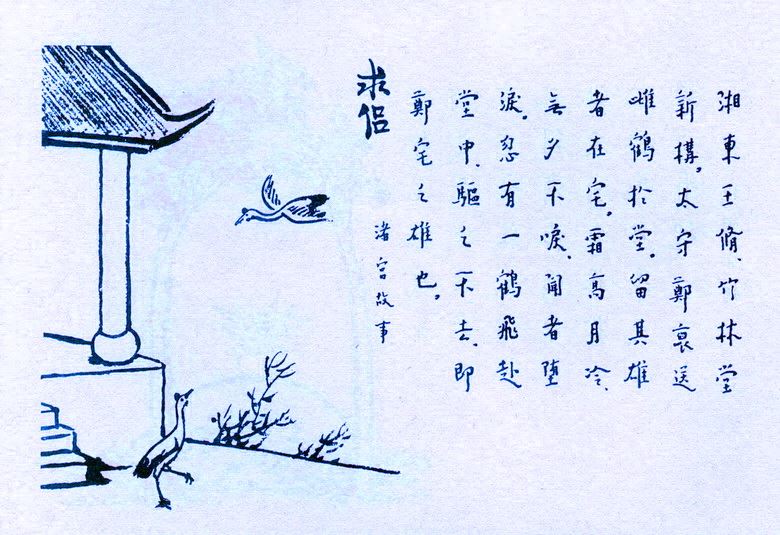 求侶
湘東王脩、竹林堂
新構。太守鄭裒送
雌鶴於堂。留其雄
者在宅。霜高月冷、
無夕不唳。聞者墮
淚。忽有一鶴飛赴
堂中、驅之不去、即
鄭宅之雄也。
渚宮故事